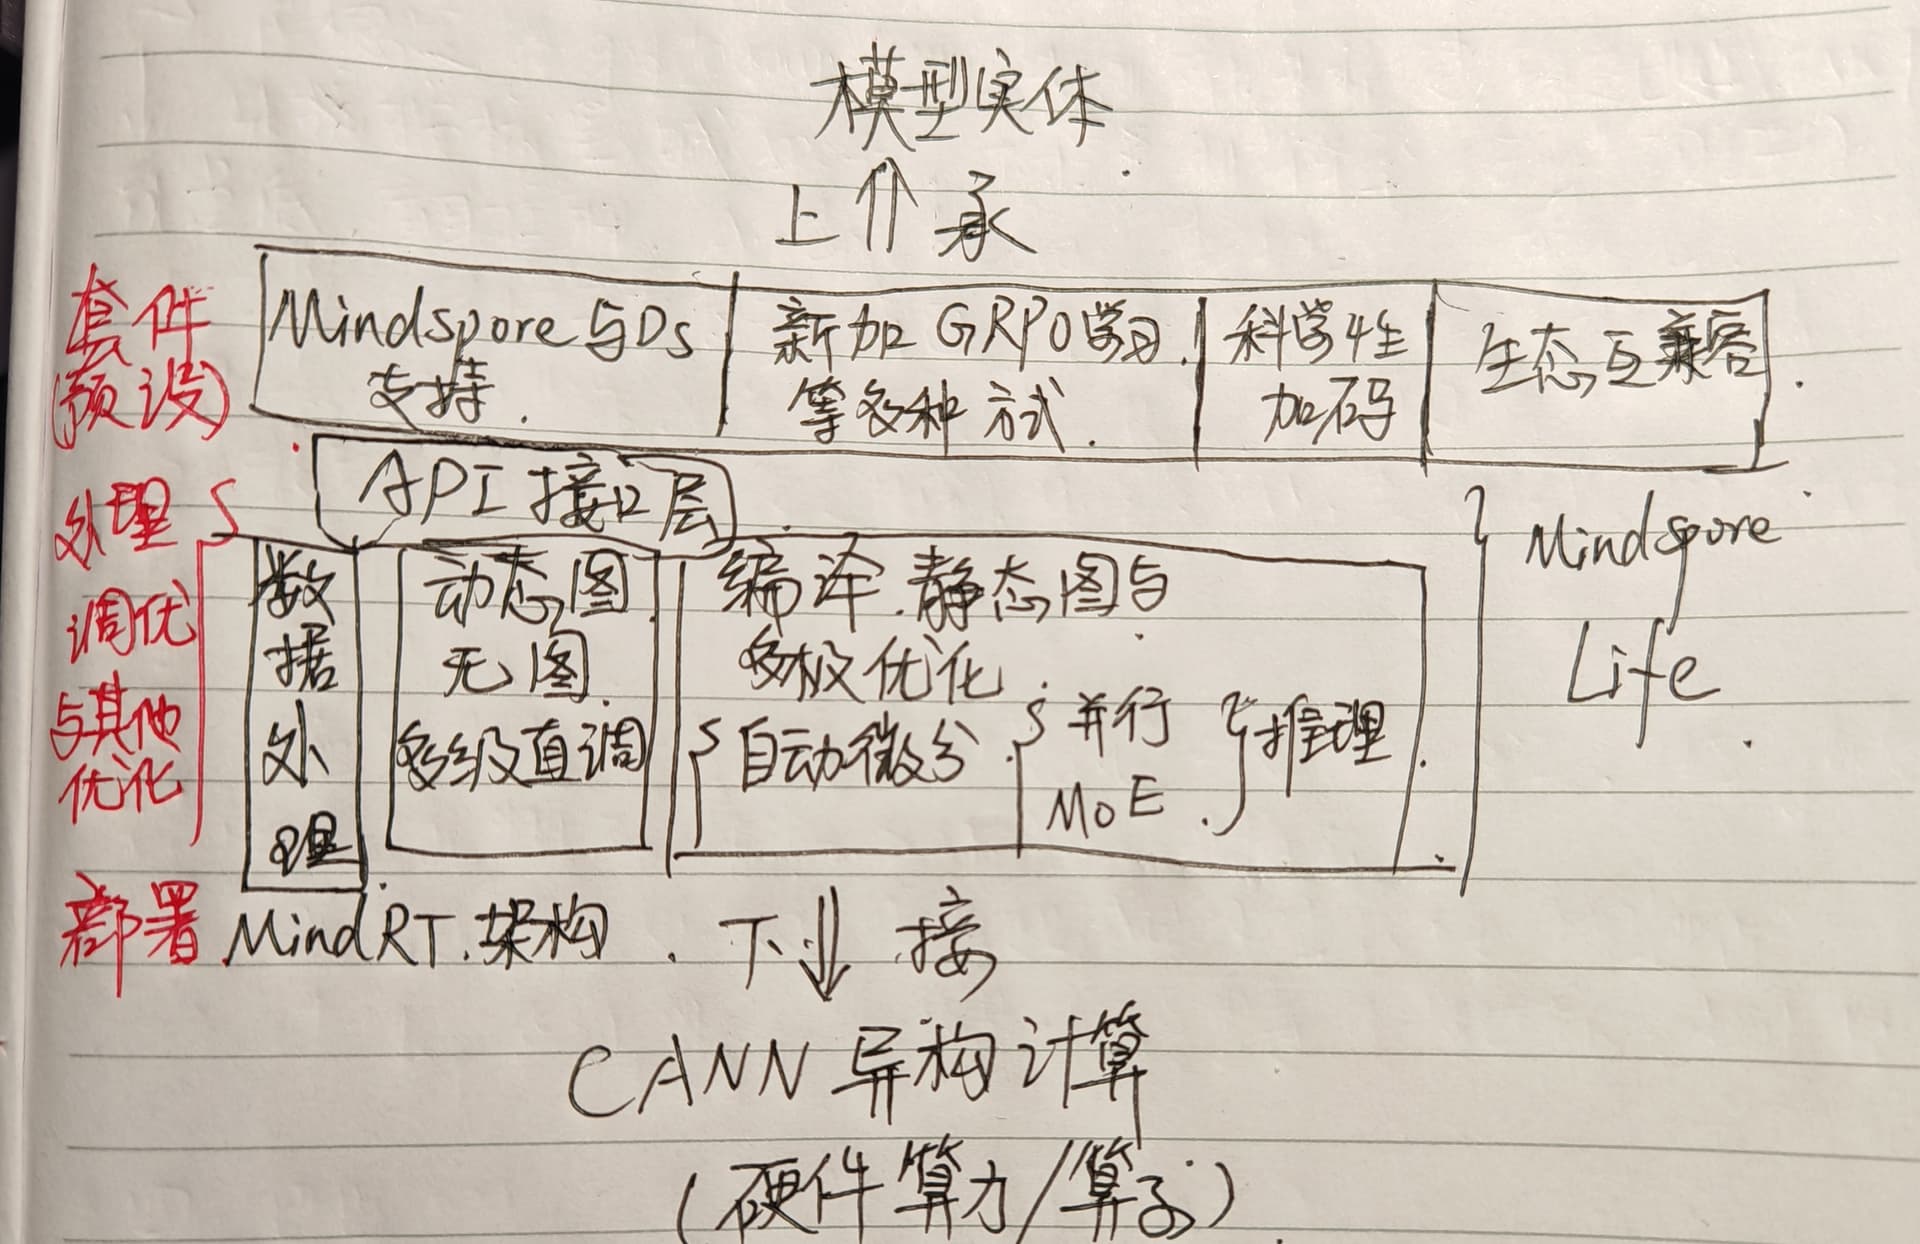 模型实体
上 承
套件
(预设)
Mindspore与Ds
支持.
新加GRPO学习.
等多种方式.
科学性
加码
生态互兼容
API接口层
处理
调优
与其他
优化
数
据
处
理
动态图
无图
多级直调
编译.静态图与
多极优化
自动微分
并行
MoE
推理
Mindspore
Life
部署
MindRT.架构
下 接
CANN异构计算
(硬件算力/算子)